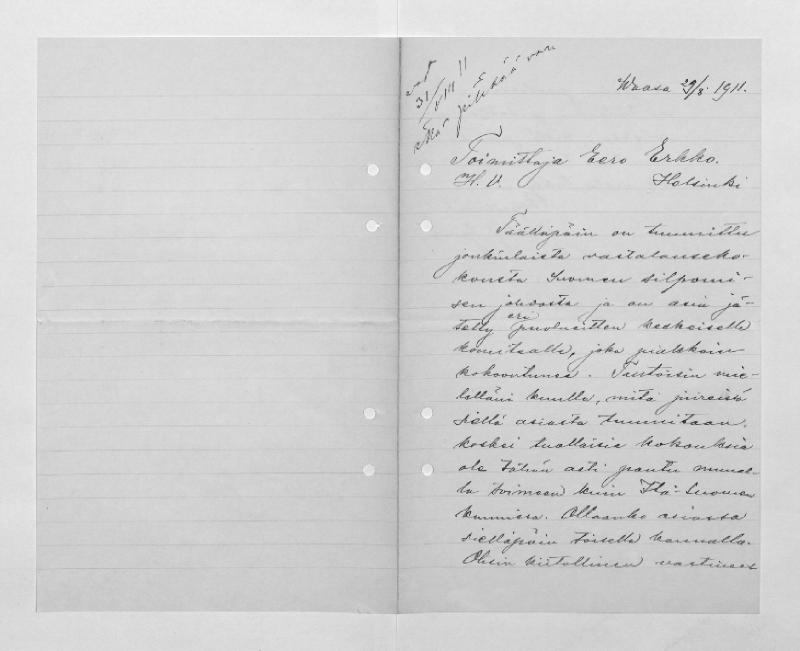 vast
31/VIII 11
E
Waasa 29/8. 1911.
Toimittaja Eero Erkko.
H. V. Helsinki
Täälläpäin on tuumittu
jonkinlaista vastalauseko-
kousta Suomen silpomi-
sen johdosta ja on asia jä-
tetty eri puolueitten keskeiselle
komitealle, joka piakkoin
kokoontunee. Tustoisin mie-
lelläni kuulla, mitä piireissä
siellä asiasta tuumitaan,
koskei tuollaisia kokouksia
ole tähän asti pantu muual-
la toimeen kuin Itä-Suomen
kunnissa. Ollaanko asiassa
sielläpäin toisella kannalla.
Olisin kiitollinen vastineest